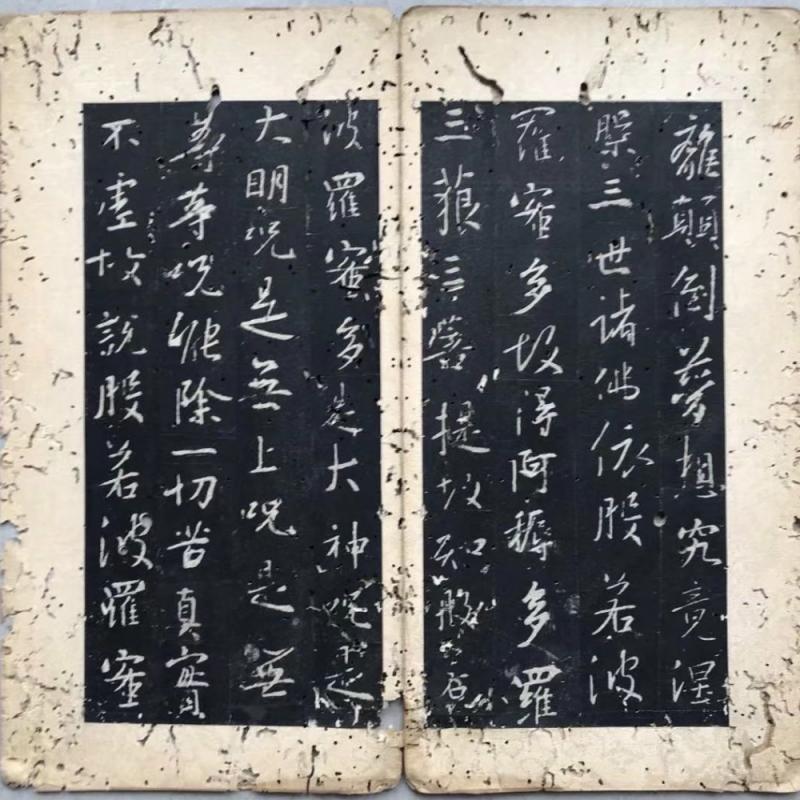 離顛倒夢想究竟涅
槃三世諸佛依般若波
羅蜜多故得阿耨多羅
三藐三菩提故知般若
波羅蜜多是大神咒是
大明咒是無上咒是無
等等咒能除一切苦真實
不虛故說般若波羅蜜